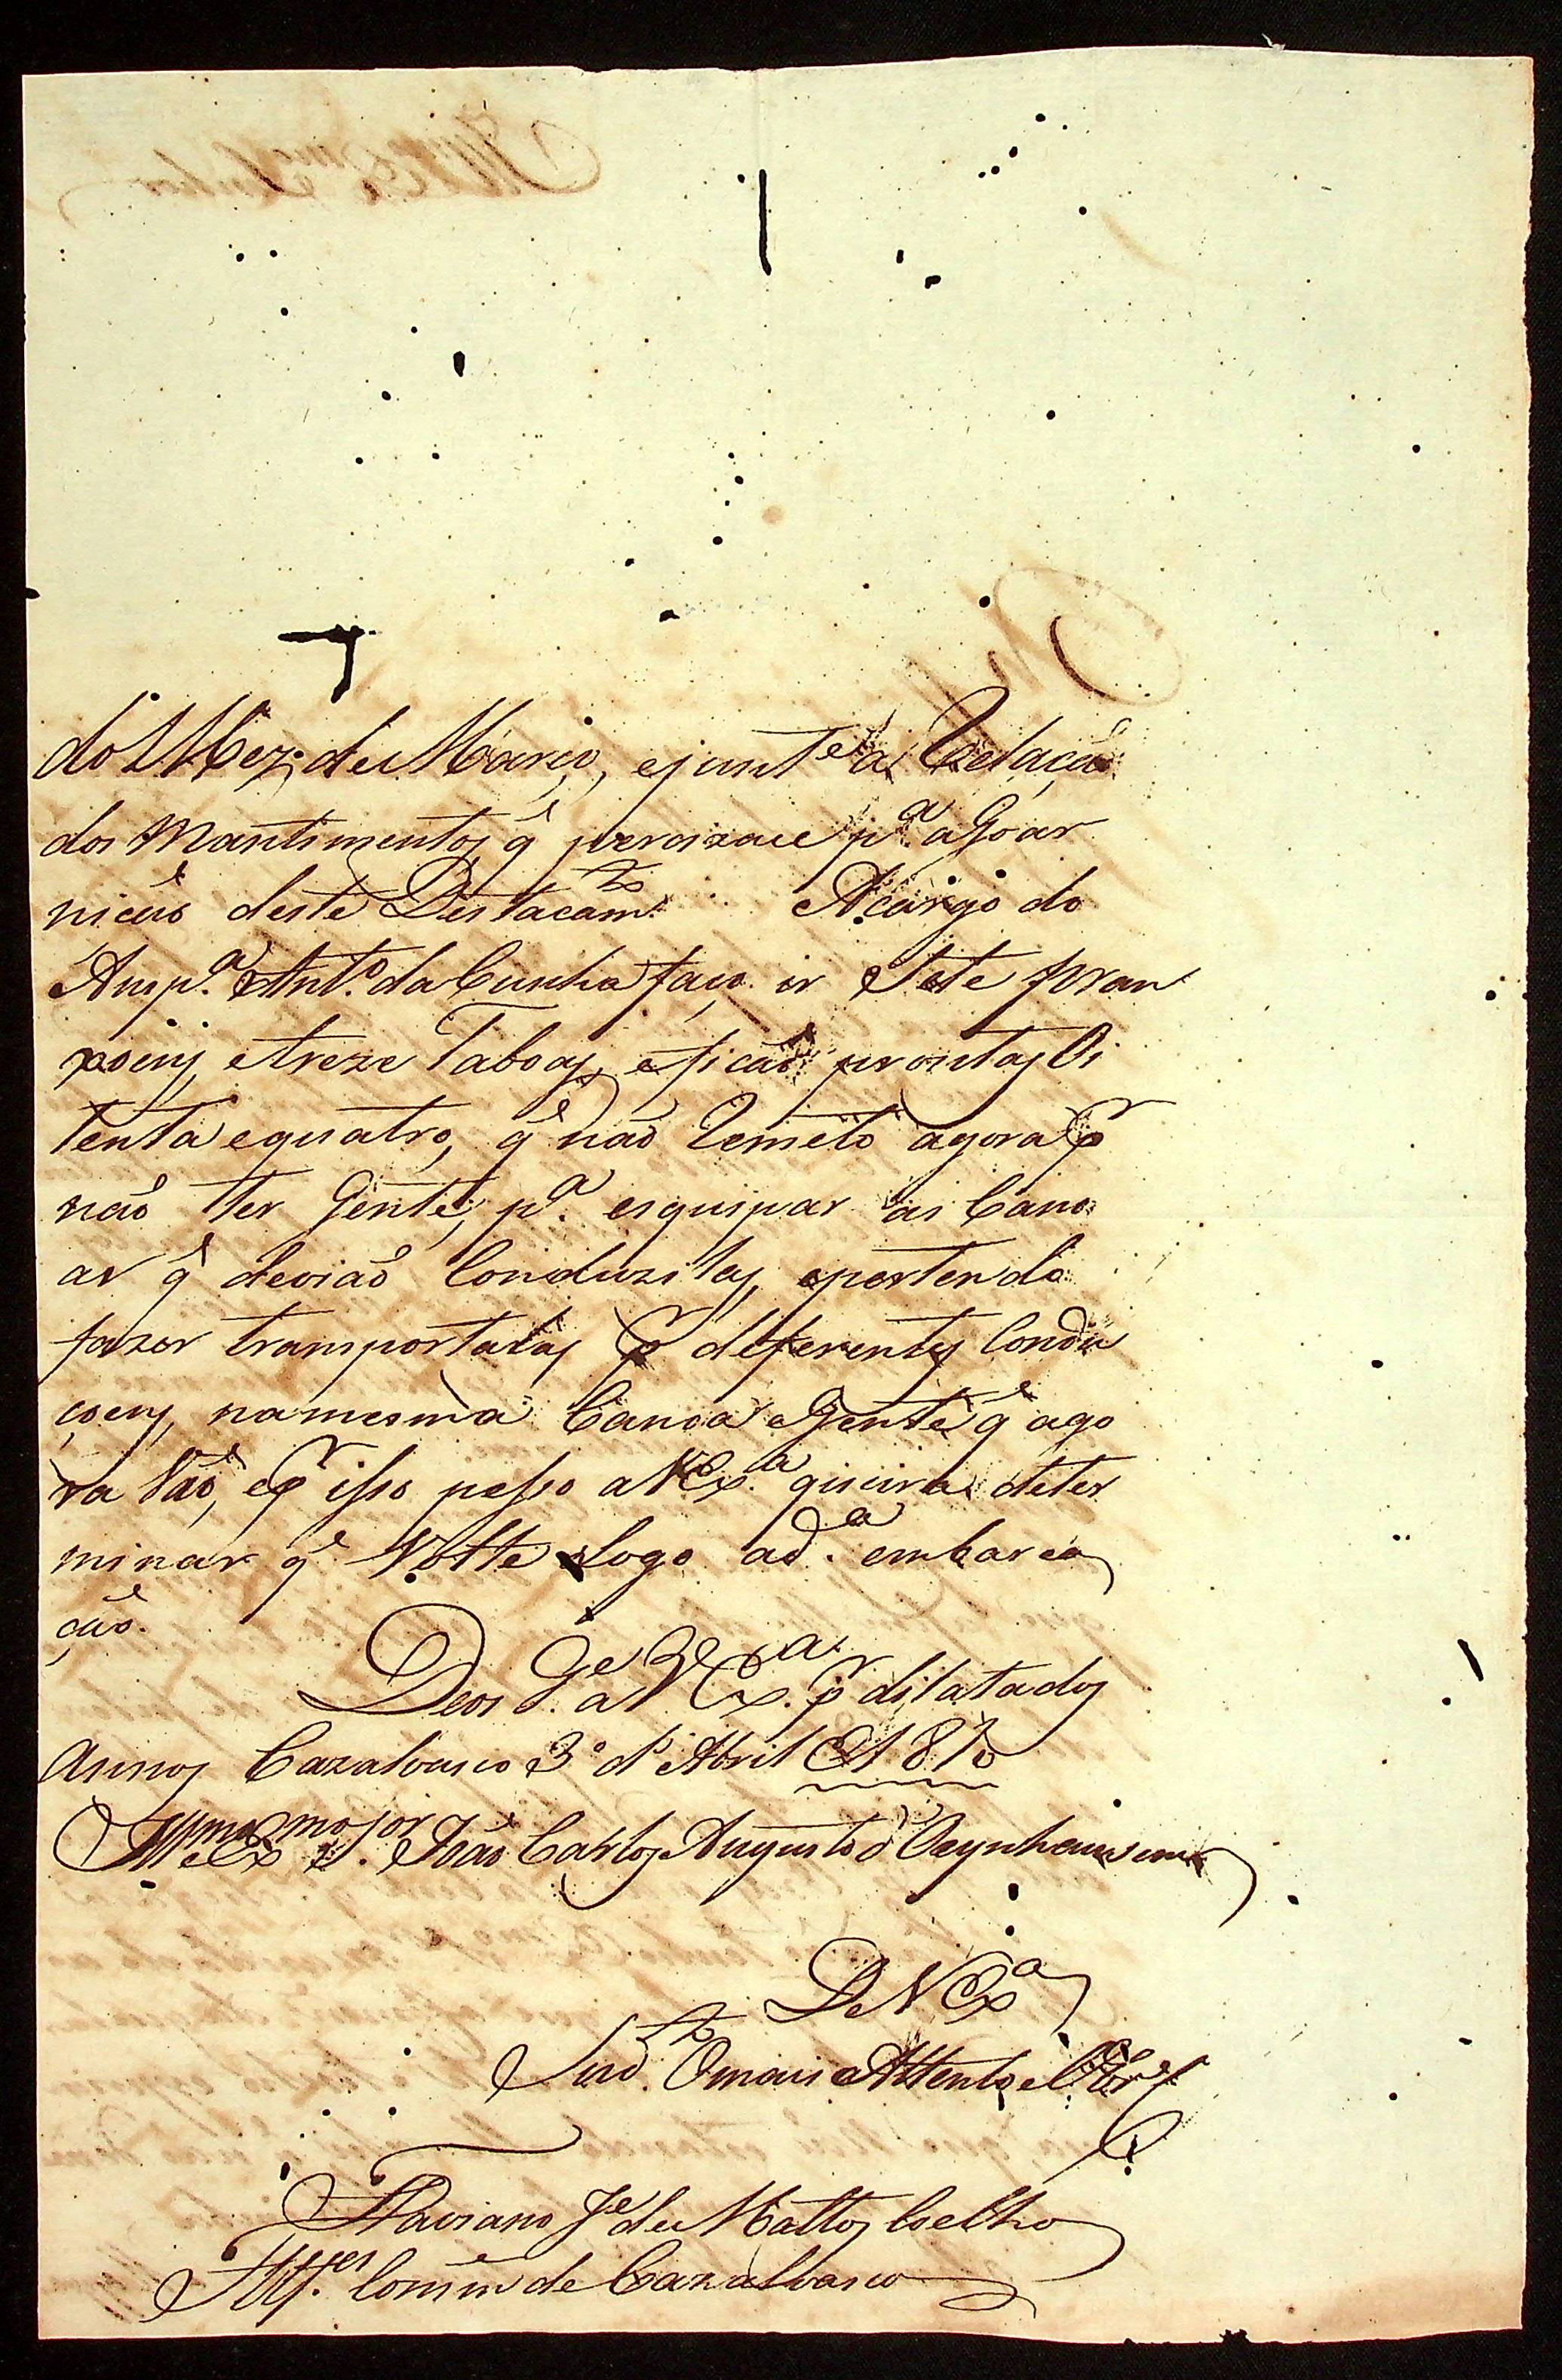 do Mez de Março, ejunt.e a Relaçaõ
dos Mantimentos q̃ percizace p.a aGoar
niçaõ deste Destacam.to Acargo do
Ansp.a Ant.o da Cunha faço ir Sete pran
xoens, etreze Taboas, eficaõ prontas Oi
tenta equatro, q̃ naõ Remeto agora pr
naõ ter Gente, p.a esquipar as Cano
as q̃ deviaõ Conduzilas, epertendo
fazer transportalas pr deferentes Condu
çoens, namesma Canoa eGente q̃ ago
ra Vaõ, epr isso pesso aVEx.a queira deter
minar q̃ Vollte Logo ad.a embarca
çaõ.
Deos G.e a VEx.a pr dilatados
Annos Cazalvasco 3º d' Abril de 1810
Illmo e Exmo Snor João Carlos Augusto d' Oeynhausem
De V Ex.a
Sud.to Omais Attento e Obr.e
Flaviano J.e de Mattos Coelho
Alf.es Comm de Cazalvasco